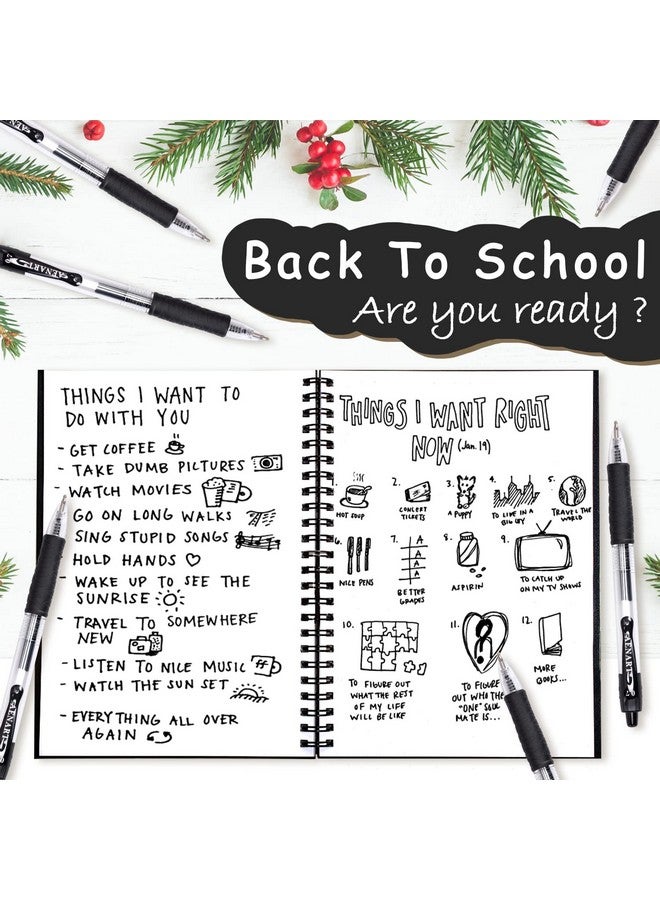 Back To School
Are you ready ?
THINGS I WANT TO
DO WITH YOU
- GET COFFEE
- TAKE DUMB PICTURES
- WATCH MOVIES
GO ON LONG WALKS
SING STUPID SONGS
HOLD HANDS ♡
- WAKE UP TO SEE THE
SUNRISE
- TRAVEL TO SOMEWHERE
NEW
- LISTEN TO NICE MUSIC
- WATCH THE SUN SET
- EVERYTHING ALL OVER
AGAIN
THINGS I WANT RIGHT
NOW (Jan. 19)
1.
HOT SOUP
2.
CONCERT
TICKETS
3.
A PUPPY
4.
TO LIVE IN A
BIG CITY
5.
TRAVEL THE
WORLD
6.
NICE PENS
7.
A
A
A
A
BETTER
GRADES
8.
ASPIRIN
9.
TO CATCH UP
ON MY TV SHOWS
10.
TO FIGURE OUT
WHAT THE REST
OF MY LIFE
WILL BE LIKE
11.
TO FIGURE
OUT WHO THE
"ONE" SOUL
MATE IS...
12.
MORE
BOOKS...